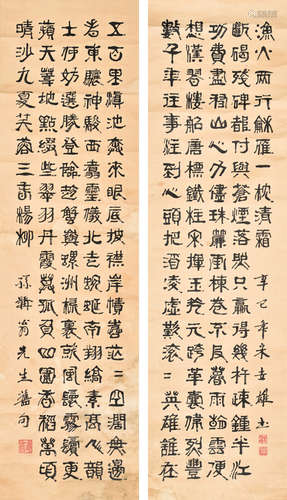 五百里滇池奔來眼底披襟岸幘喜茫〻空闊無邊
看東驤神駿西翥靈儀北走蜿蜒南翔縞素高人韻
士何妨選勝登臨趁蟹嶼螺洲梳裹就風鬟霧鬢更
蘋天葦地點綴些翠羽丹霞莫孤負四圍香稻萬頃
晴沙九夏芙蓉三春楊柳
孫髯翁先生舊句
數千年往事注到心頭把酒凌虛歎滾〻英雄誰在
想漢習樓船唐標鐵柱宋揮玉斧元跨革囊偉烈豐
功費盡移山心力儘珠簾畫棟卷不及暮雨朝雲便
斷碣殘碑都付與蒼煙落照只贏得幾杵疎鐘半江
漁火兩行龢雁一枕清霜
辛巳年